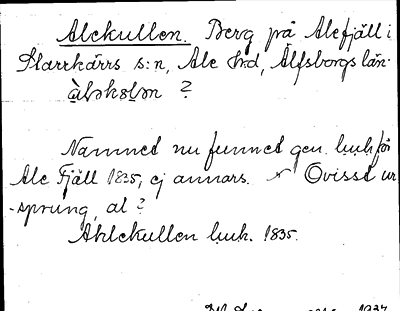 Alekullen. Berg på Alefjäll i
Starrkärrs s:n, Ale hd, Älfsborgs län.
àləkɵlən ?
Namnet nu funnet gen. huk för
Ale Fjäll 1835, ej annars. Ovisst ur-
sprung, al ?
Ahlekullen huk. 1835.
1937